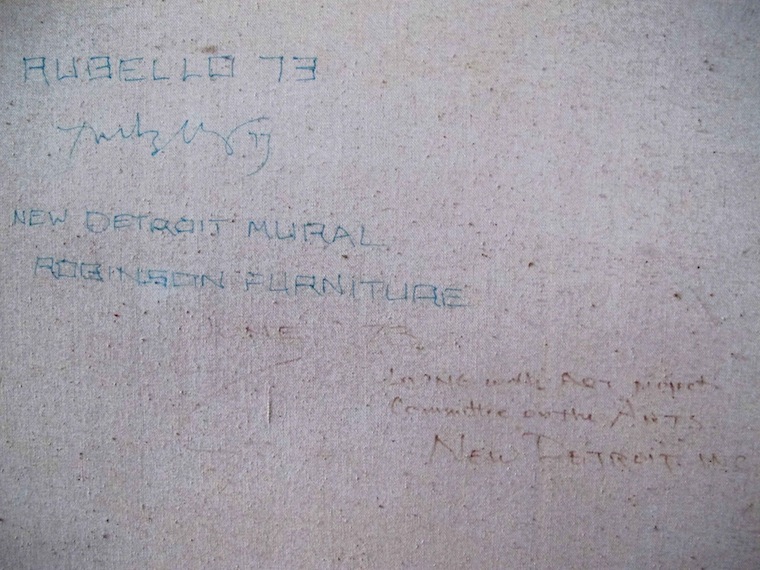 RUBELLO 73
73
NEW DETROIT MURAL
ROBINSON FURNITURE
73
Living with Art project
Committee on the Arts
New Detroit